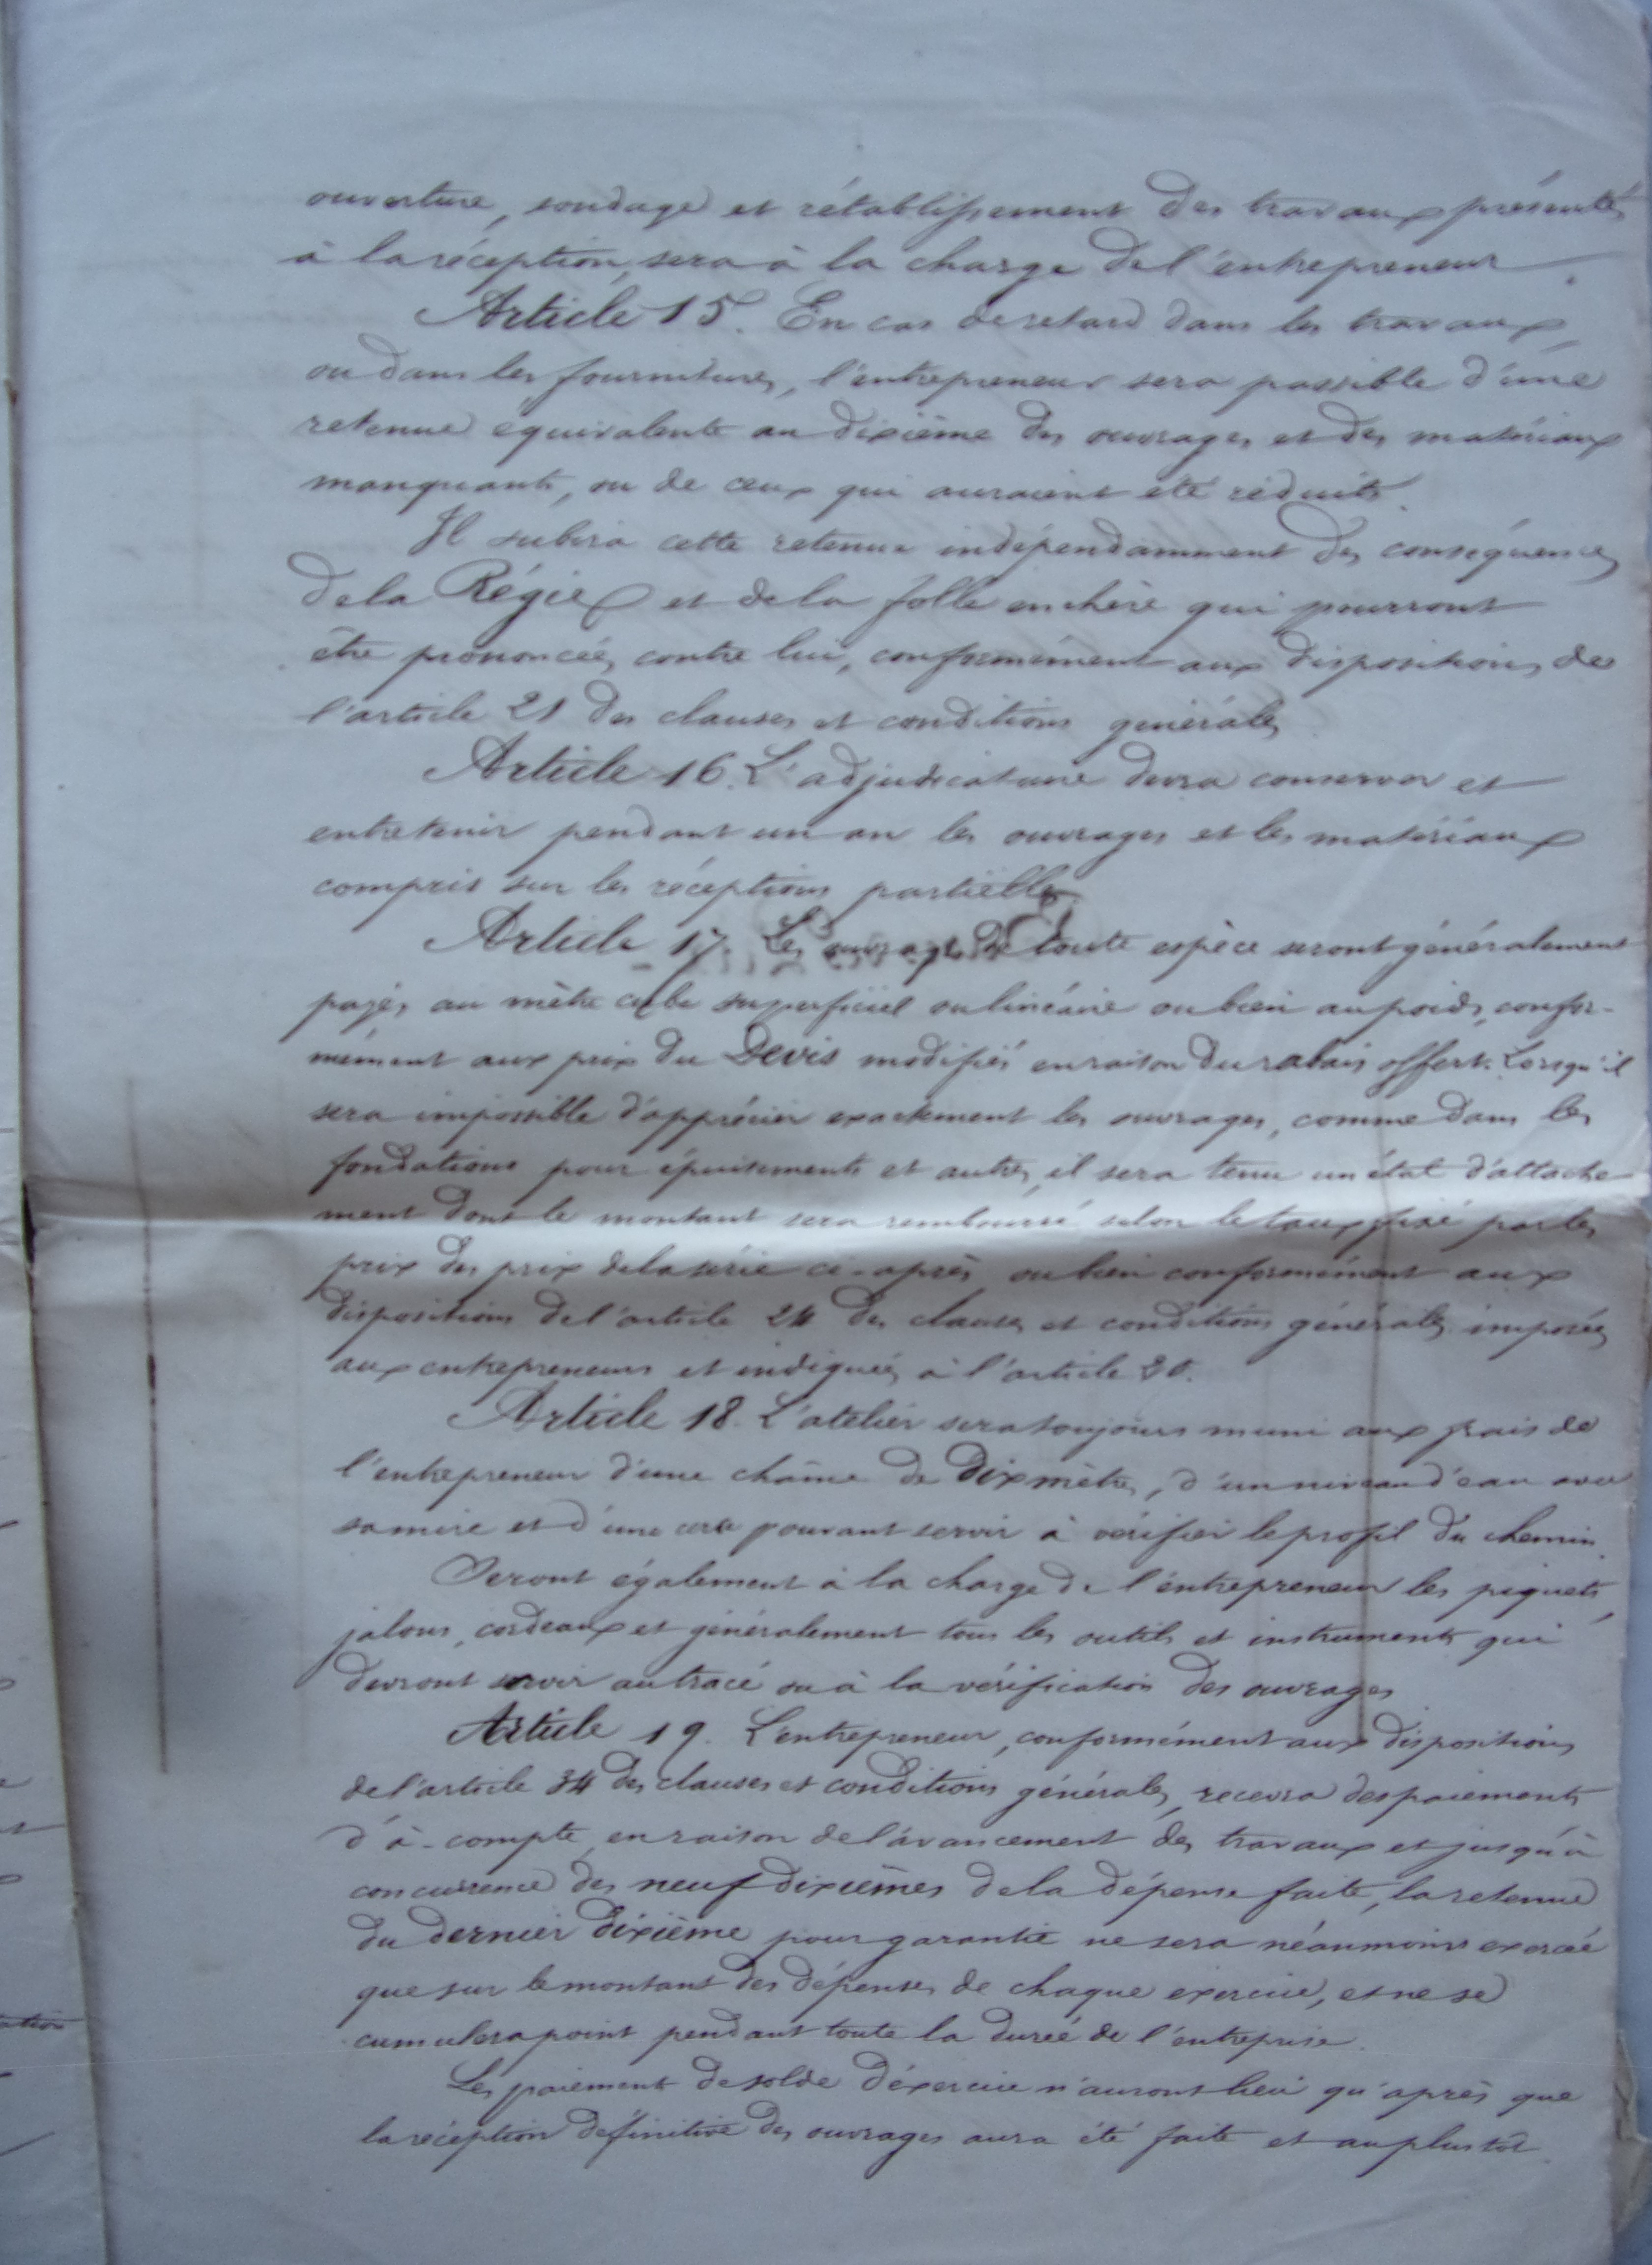 ouverture, sondage et rétablissement des travaux présentés
à la réception, sera à la charge de l'entrepreneur.
Article 15. En cas de retard dans les travaux,
ou dans les fournitures, l'entrepreneur sera passible d'une
retenue équivalente au dixième des ouvrages et des matériaux
manquants, ou de ceux qui auraient été réduits.
Il subira cette retenue indépendamment des conséquences
de la Régie et de la folle enchère qui pourront
être prononcées contre lui, conformément aux dispositions de
l'article 21 des clauses et conditions générales
Article 16. L'adjudicataire devra conserver et
entretenir pendant un an les ouvrages et les matériaux
compris sur les réceptions partielles.
Article 17. Les ouvrages de toute espèce seront généralement
payés au mètre cube superficiel ou linéaire ou bien au poids, confor-
mément aux prix du Devis modifiés en raison du rabais offert. Lorsqu'il
sera impossible d'apprécier exactement les ouvrages, comme dans les
fondations pour épuisements et autres, il sera tenu un état d'attache-
ment dont le montant sera remboursé selon le taux fixé par les
prix des prix de la série ci-après ou bien conformément aux
dispositions de l'article 24 des clauses et conditions générales imposées
aux entrepreneurs et indiquées à l'article
Article 18. L'atelier sera toujours muni aux frais de
l'entrepreneur d'une chaîne de dix mètres, d'un niveau d'eau avec
sa mire et d'une pouvant servir à vérifier le profil du chemin.
Seront également à la charge de l'entrepreneur les piquets,
jalons, cordeaux et généralement tous les outils et instruments qui
devront servir au tracé ou à la vérification des ouvrages
Article 19. L'entrepreneur, conformément aux dispositions
de l'article 34 des clauses et conditions générales, recevra des paiements
d'à-compte, en raison de l'avancement des travaux et jusqu'à
concurrence des neuf dixièmes de la dépense faite, la retenue
du dernier dixième pour garantie ne sera néanmoins exercée
que sur le montant des dépenses de chaque exercice, et ne se
cumulera point pendant toute la durée de l'entreprise.
Les paiements de solde d'exercice n'auront lieu qu'après que
la réception définitive des ouvrages aura été faite et au plus tôt